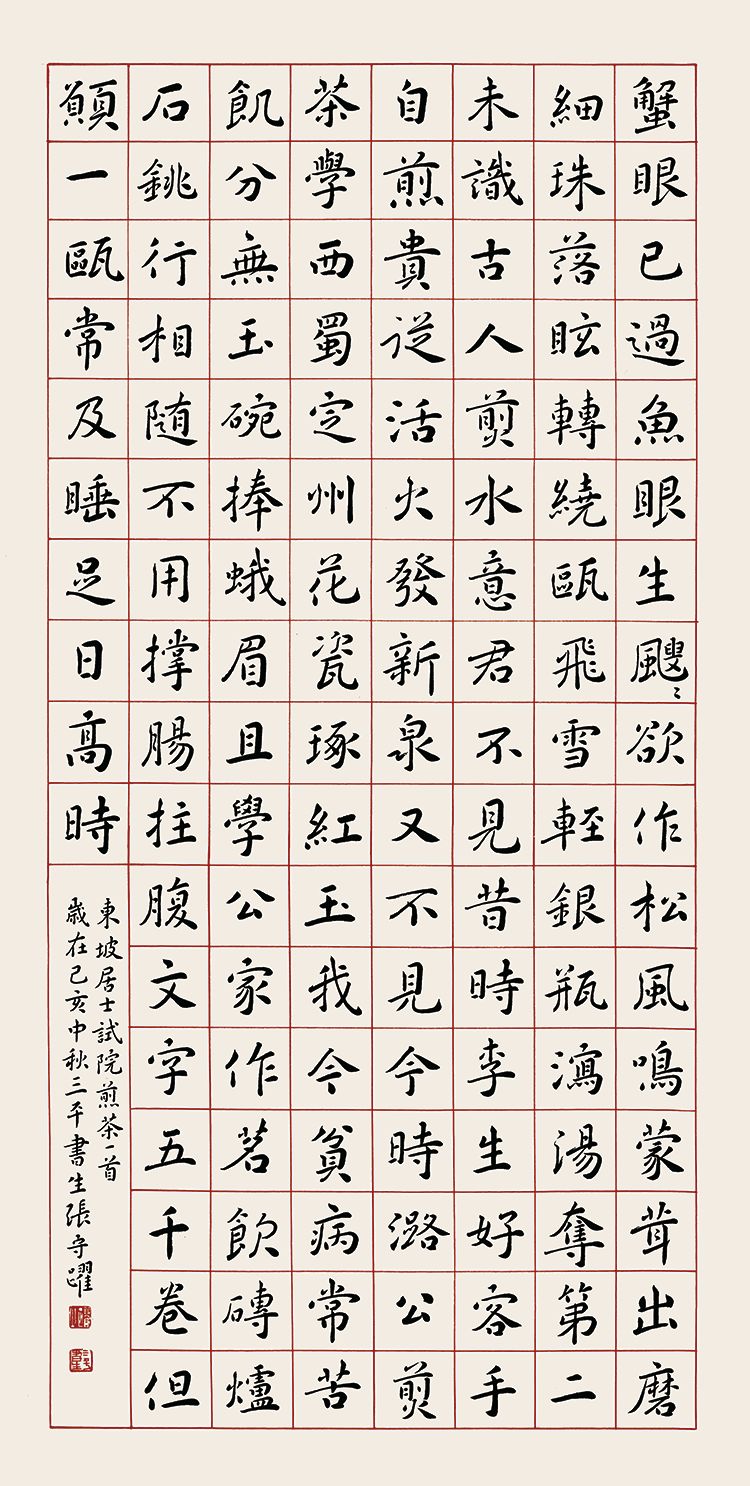 蟹眼已過魚眼生颼〻欲作松風鳴蒙茸出磨
細珠落眩轉繞甌飛雪輕銀瓶瀉湯奪第二
未識古人煎水意君不見昔時李生好客手
自煎貴從活火發新泉又不見今時潞公煎
茶學西蜀定州花瓷琢紅玉我今貧病常苦
飢分無玉碗捧蛾眉且學公家作茗飲磚爐
石銚行相隨不用撑腸拄腹文字五千卷但
願一甌常及睡足日高時
東坡居士試院煎茶一首
歲在己亥中秋三平書生張守躍